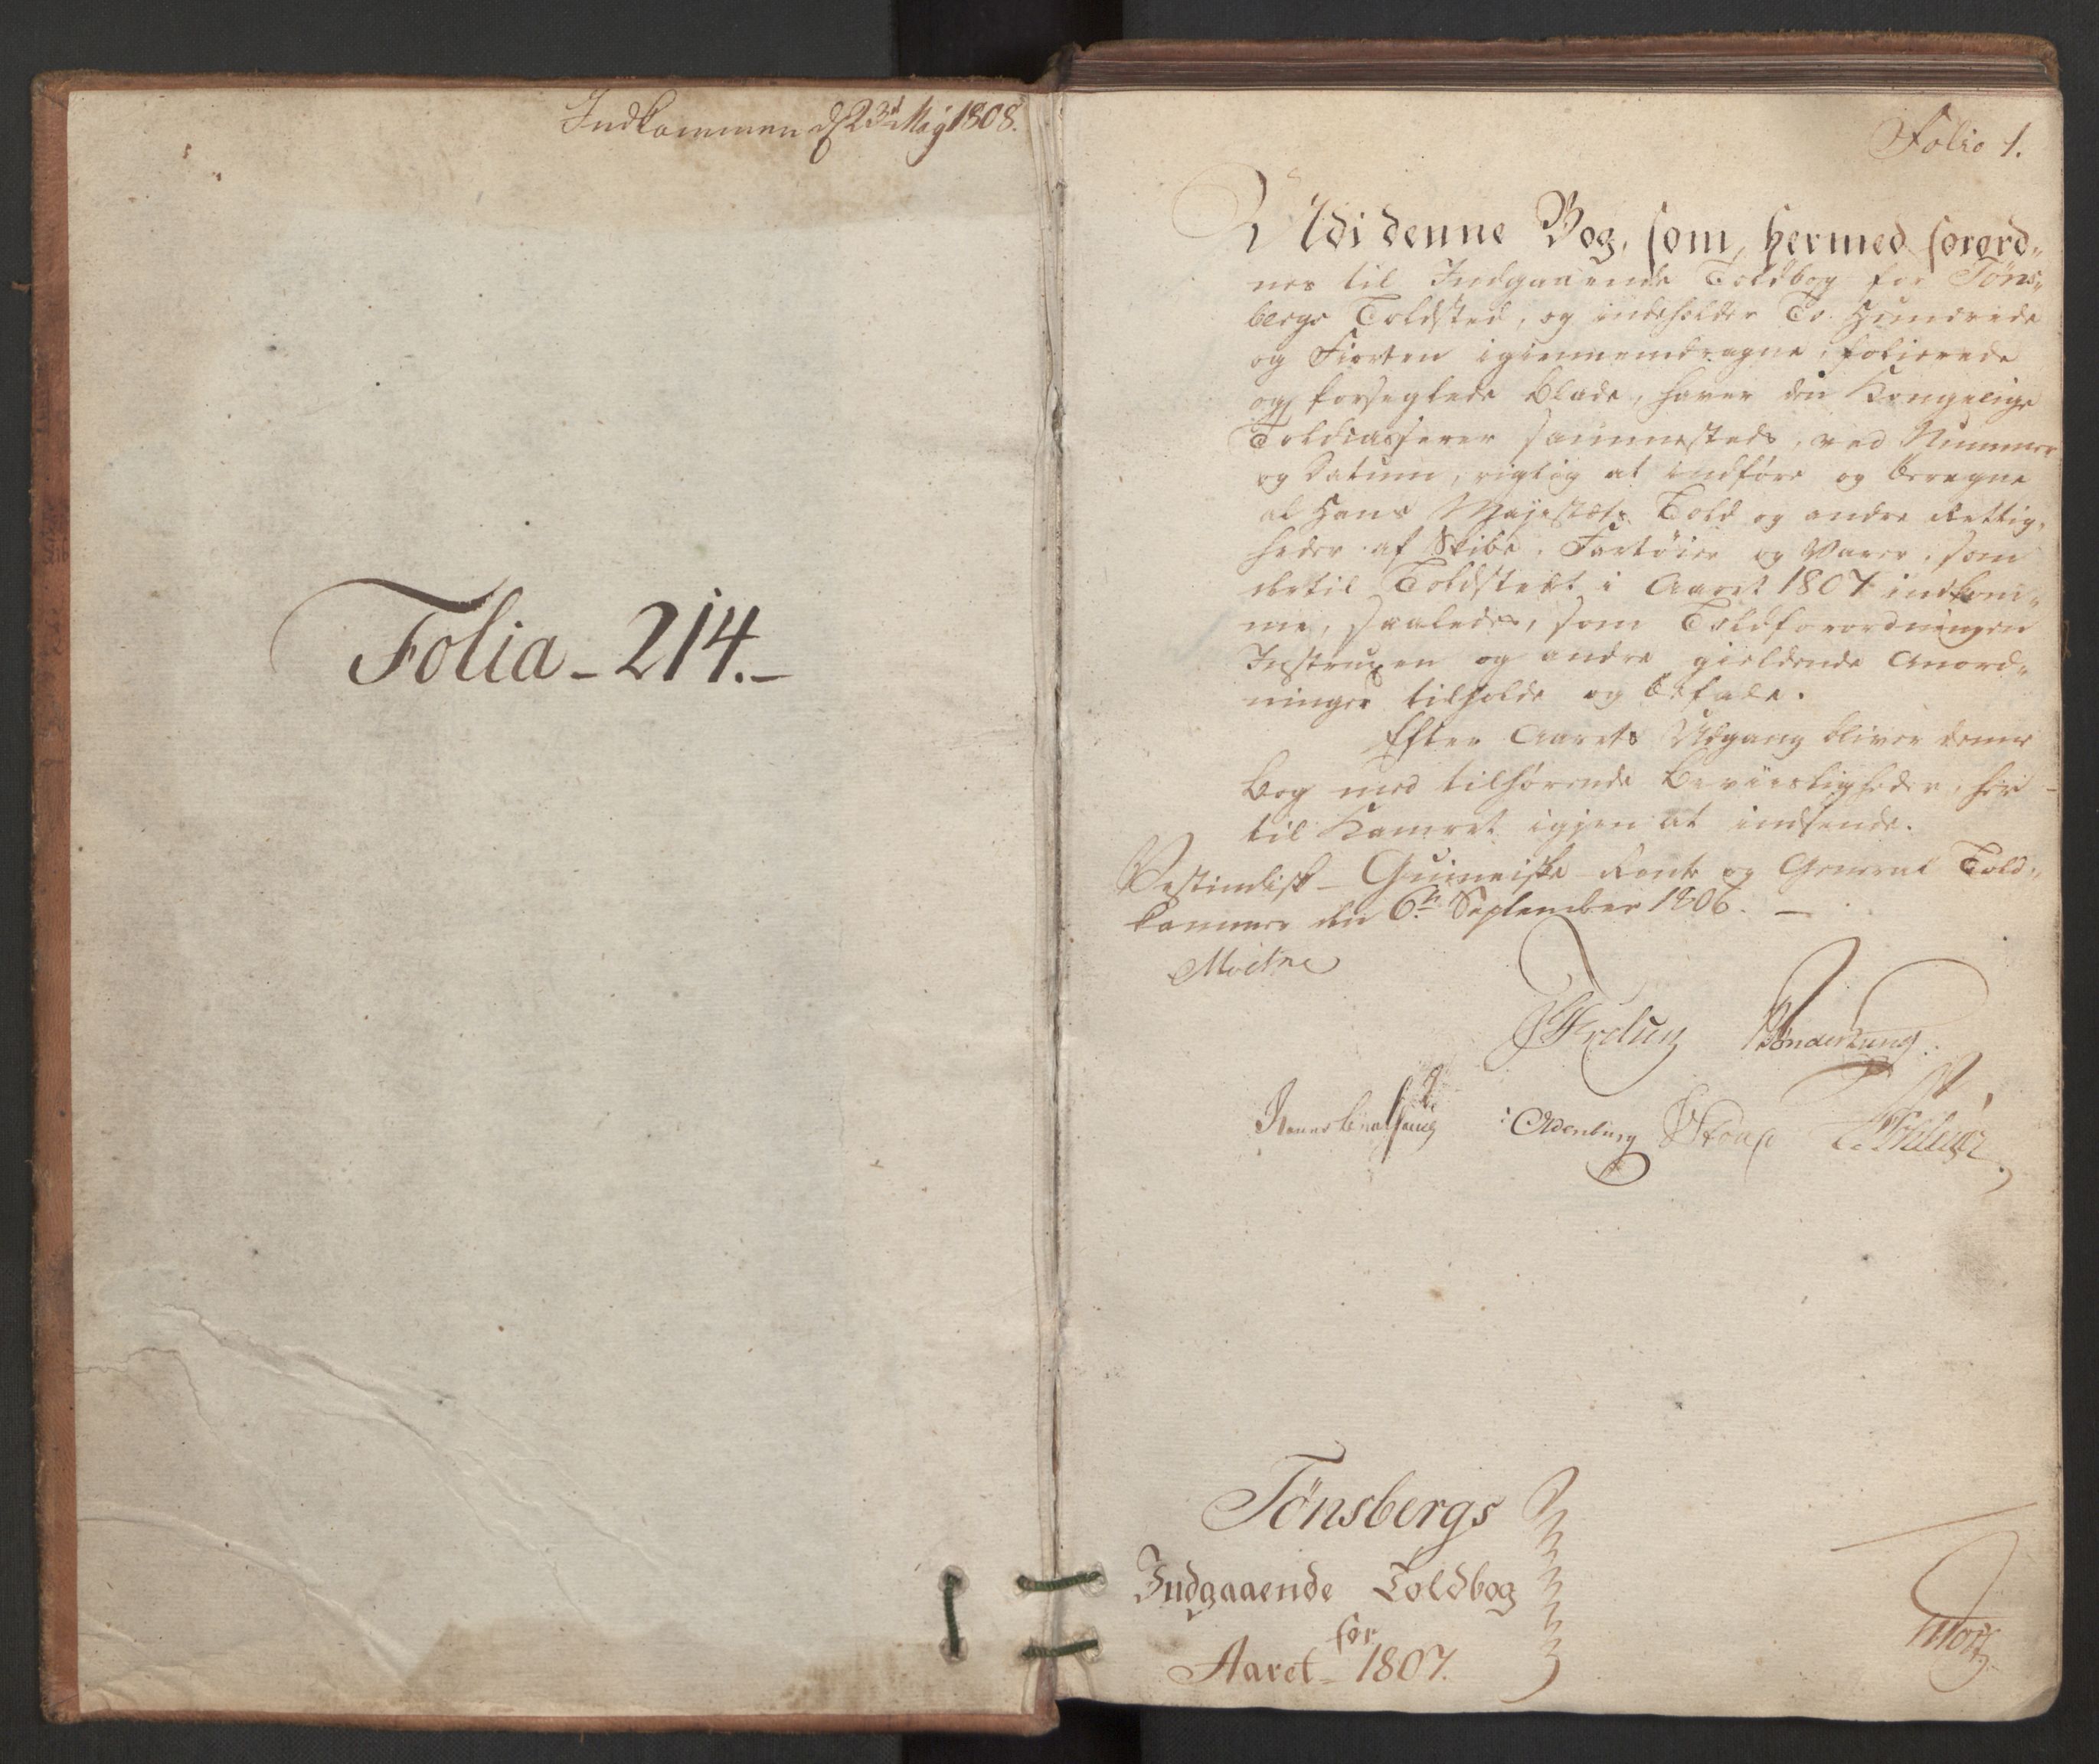 Indkommen d 23d May 1808.
Folia - 214. -
Folio 1.
Udi denne Bog, som hermed forord„
nes til Indgaaende Toldbog for Töns„
bergs Toldsted, og indeholder To Hundrede
og Fiorten igiennemdragne, folierede
og forseglede Blade, haver den Kongelige
Toldcasserer sammesteds, ved Nummer
og Datum, rigtig at indföre og beregne
al Hans Majestæts Told og andre Rettig„
heder af Skibe, Fartöier og Varer, som
dertil Toldstedet i Aaret 1807 indkom„
me, saaledes, som Toldforordningen
Instruxen og andre gieldende Anord„
ninger tilholde og befale.
Efter Aarets Udgang bliver denne
Bog med tilhörende Beviisligheder, her -
til Kamret igjen at indsende.
Vestindisk - Guineiske Rente og General Told„
kammer den 6te September 1806. -
Oldenburg
Tönsbergs
Indgaaende Toldbog
for
Aaret - 1807.